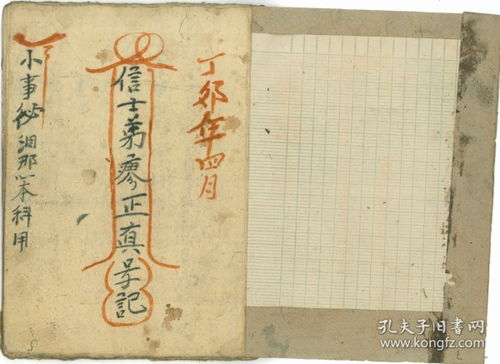 丁卯年四月
信士弟廖正真号記
小事秘洄那笨科用
孔夫子旧书网
kongfz.com